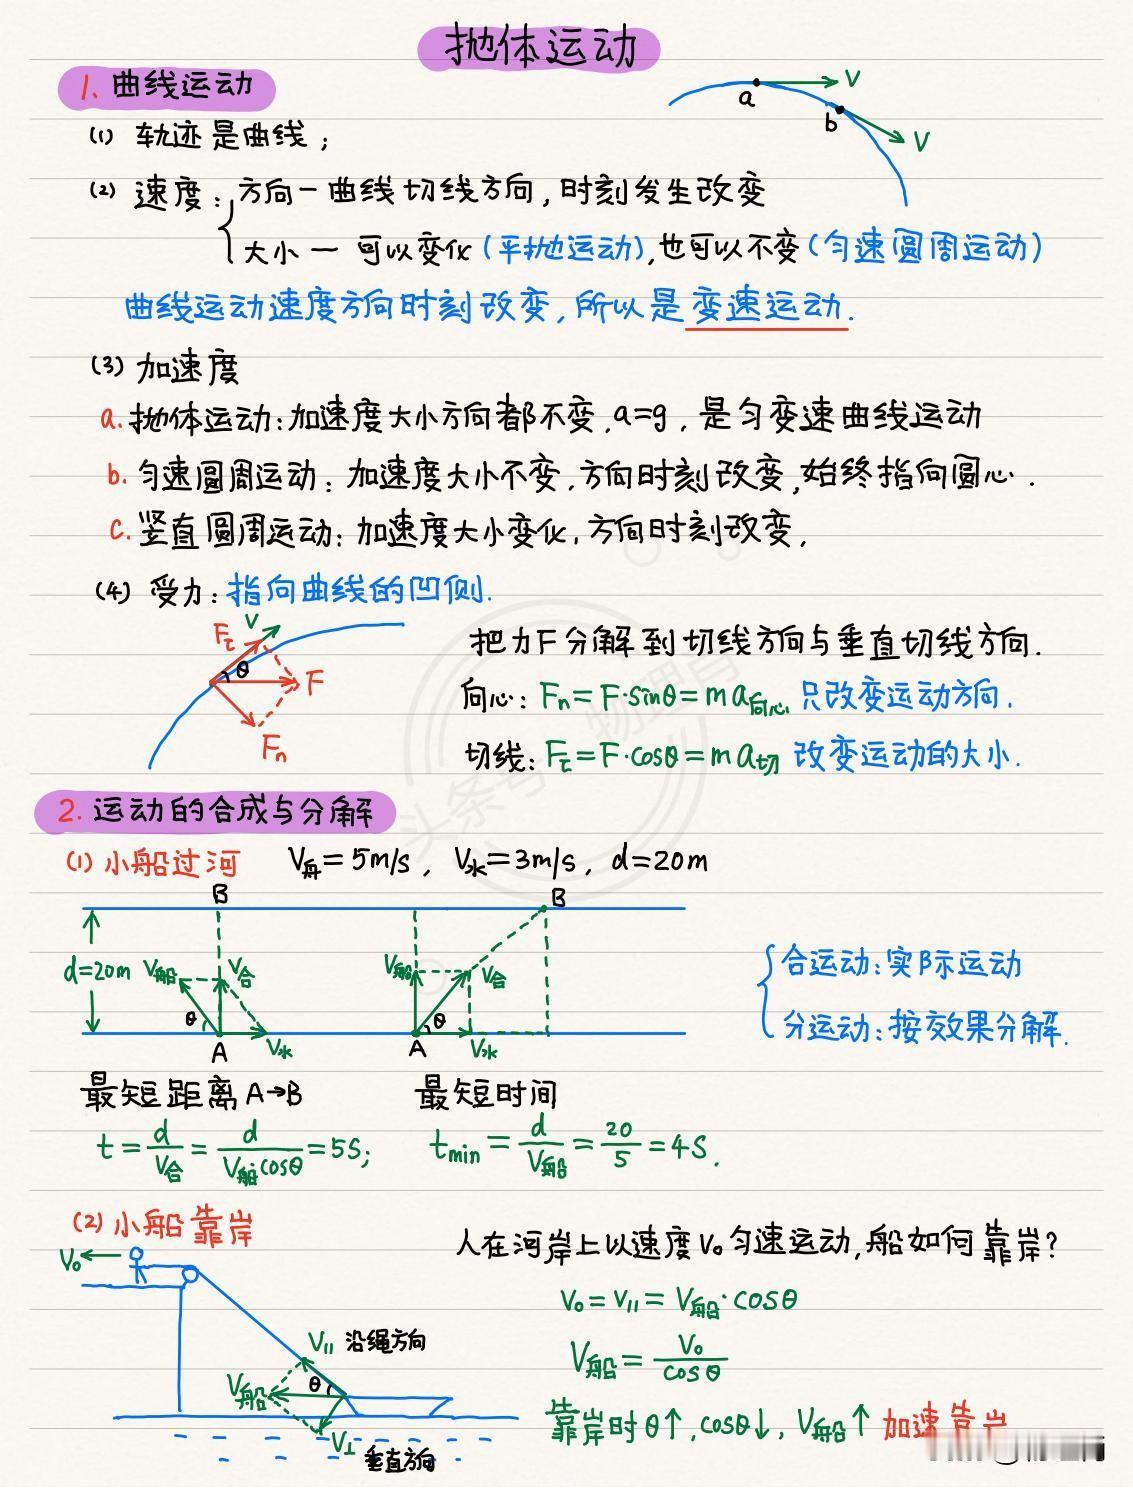 抛体运动
1. 曲线运动
a
V
b
V
(1) 轨迹是曲线；
(2) 速度：方向—曲线切线方向，时刻发生改变
大小— 可以变化（平抛运动），也可以不变（匀速圆周运动）
曲线运动速度方向时刻改变，所以是变速运动.
(3) 加速度
a. 抛体运动：加速度大小方向都不变，a=g，是匀变速曲线运动
b. 匀速圆周运动：加速度大小不变，方向时刻改变，始终指向圆心.
c. 竖直圆周运动：加速度大小变化，方向时刻改变，
(4) 受力：指向曲线的凹侧.
V
Fτ
θ
F
Fn
把力F分解到切线方向与垂直切线方向.
向心：Fn=F·sinθ=ma向心 只改变运动方向.
切线：Fτ=F·cosθ=ma切 改变运动的大小.
头条号 物理肖
2. 运动的合成与分解
(1) 小船过河 V舟=5m/s，V水=3m/s，d=20m
B
B
d=20m
V船
V合
θ
A
V水
V船
V合
θ
A
V水
合运动：实际运动
分运动：按效果分解.
最短距离A→B
最短时间
t=d/V合=d/V船cosθ=5s;
tmin=d/V船=20/5=4s.
(2) 小船靠岸
人在河岸上以速度V₀匀速运动，船如何靠岸？
V₀
V₀=V∥=V船·cosθ
V∥ 沿绳方向
V船=V₀/cosθ
V船
θ
靠岸时θ↑，cosθ↓，V船↑ 加速靠岸
V⊥ 垂直方向